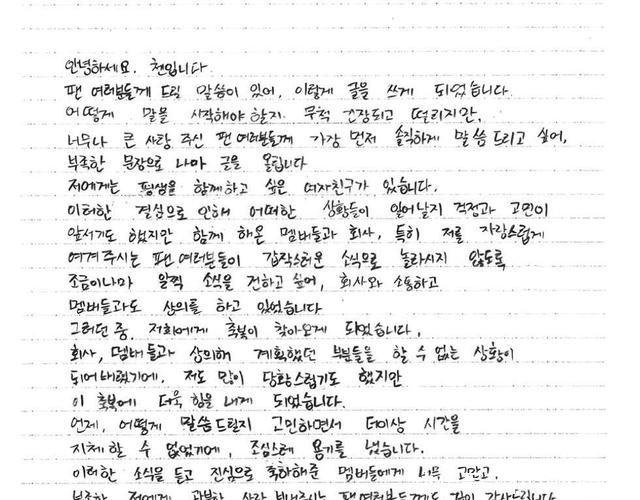 안녕하세요. 첸입니다.
팬 여러분들께 드릴 말씀이 있어, 이렇게 글을 쓰게 되었습니다.
어떻게 말을 시작해야 할지 무척 긴장되고 떨리지만,
너무나 큰 사랑 주신 팬 여러분들께 가장 먼저 솔직하게 말씀드리고 싶어,
부족한 문장으로 나마 글을 올립니다
저에게는 평생을 함께하고 싶은 여자친구가 있습니다.
이러한 결심으로 인해 어떠한 상황들이 일어날지 걱정과 고민이
앞서기도 했지만 함께 해온 멤버들과 회사, 특히 저를 자랑스럽게
여겨주시는 팬 여러분들이 갑작스러운 소식으로 놀라시지 않도록
조금이나마 일찍 소식을 전하고 싶어, 회사와 소통하고
멤버들과도 상의를 하고 있었습니다
그러던 중, 저희에게 축복이 찾아오게 되었습니다.
회사, 멤버들과 상의해 계획했던 부분들을 할 수 없는 상황이
되어버렸기에, 저도 많이 당황스럽기도 했지만
이 축복에 더욱 힘을 내게 되었습니다.
언제, 어떻게 말씀드릴지 고민하면서 더이상 시간을
지체할 수 없었기에, 조심스레 용기를 냈습니다.
이러한 소식을 듣고 진심으로 축하해준 멤버들에게 너무 고맙고,
부족한 저에게 과분한 사랑 보내주시는 팬 여러분들께도 감사드립니다